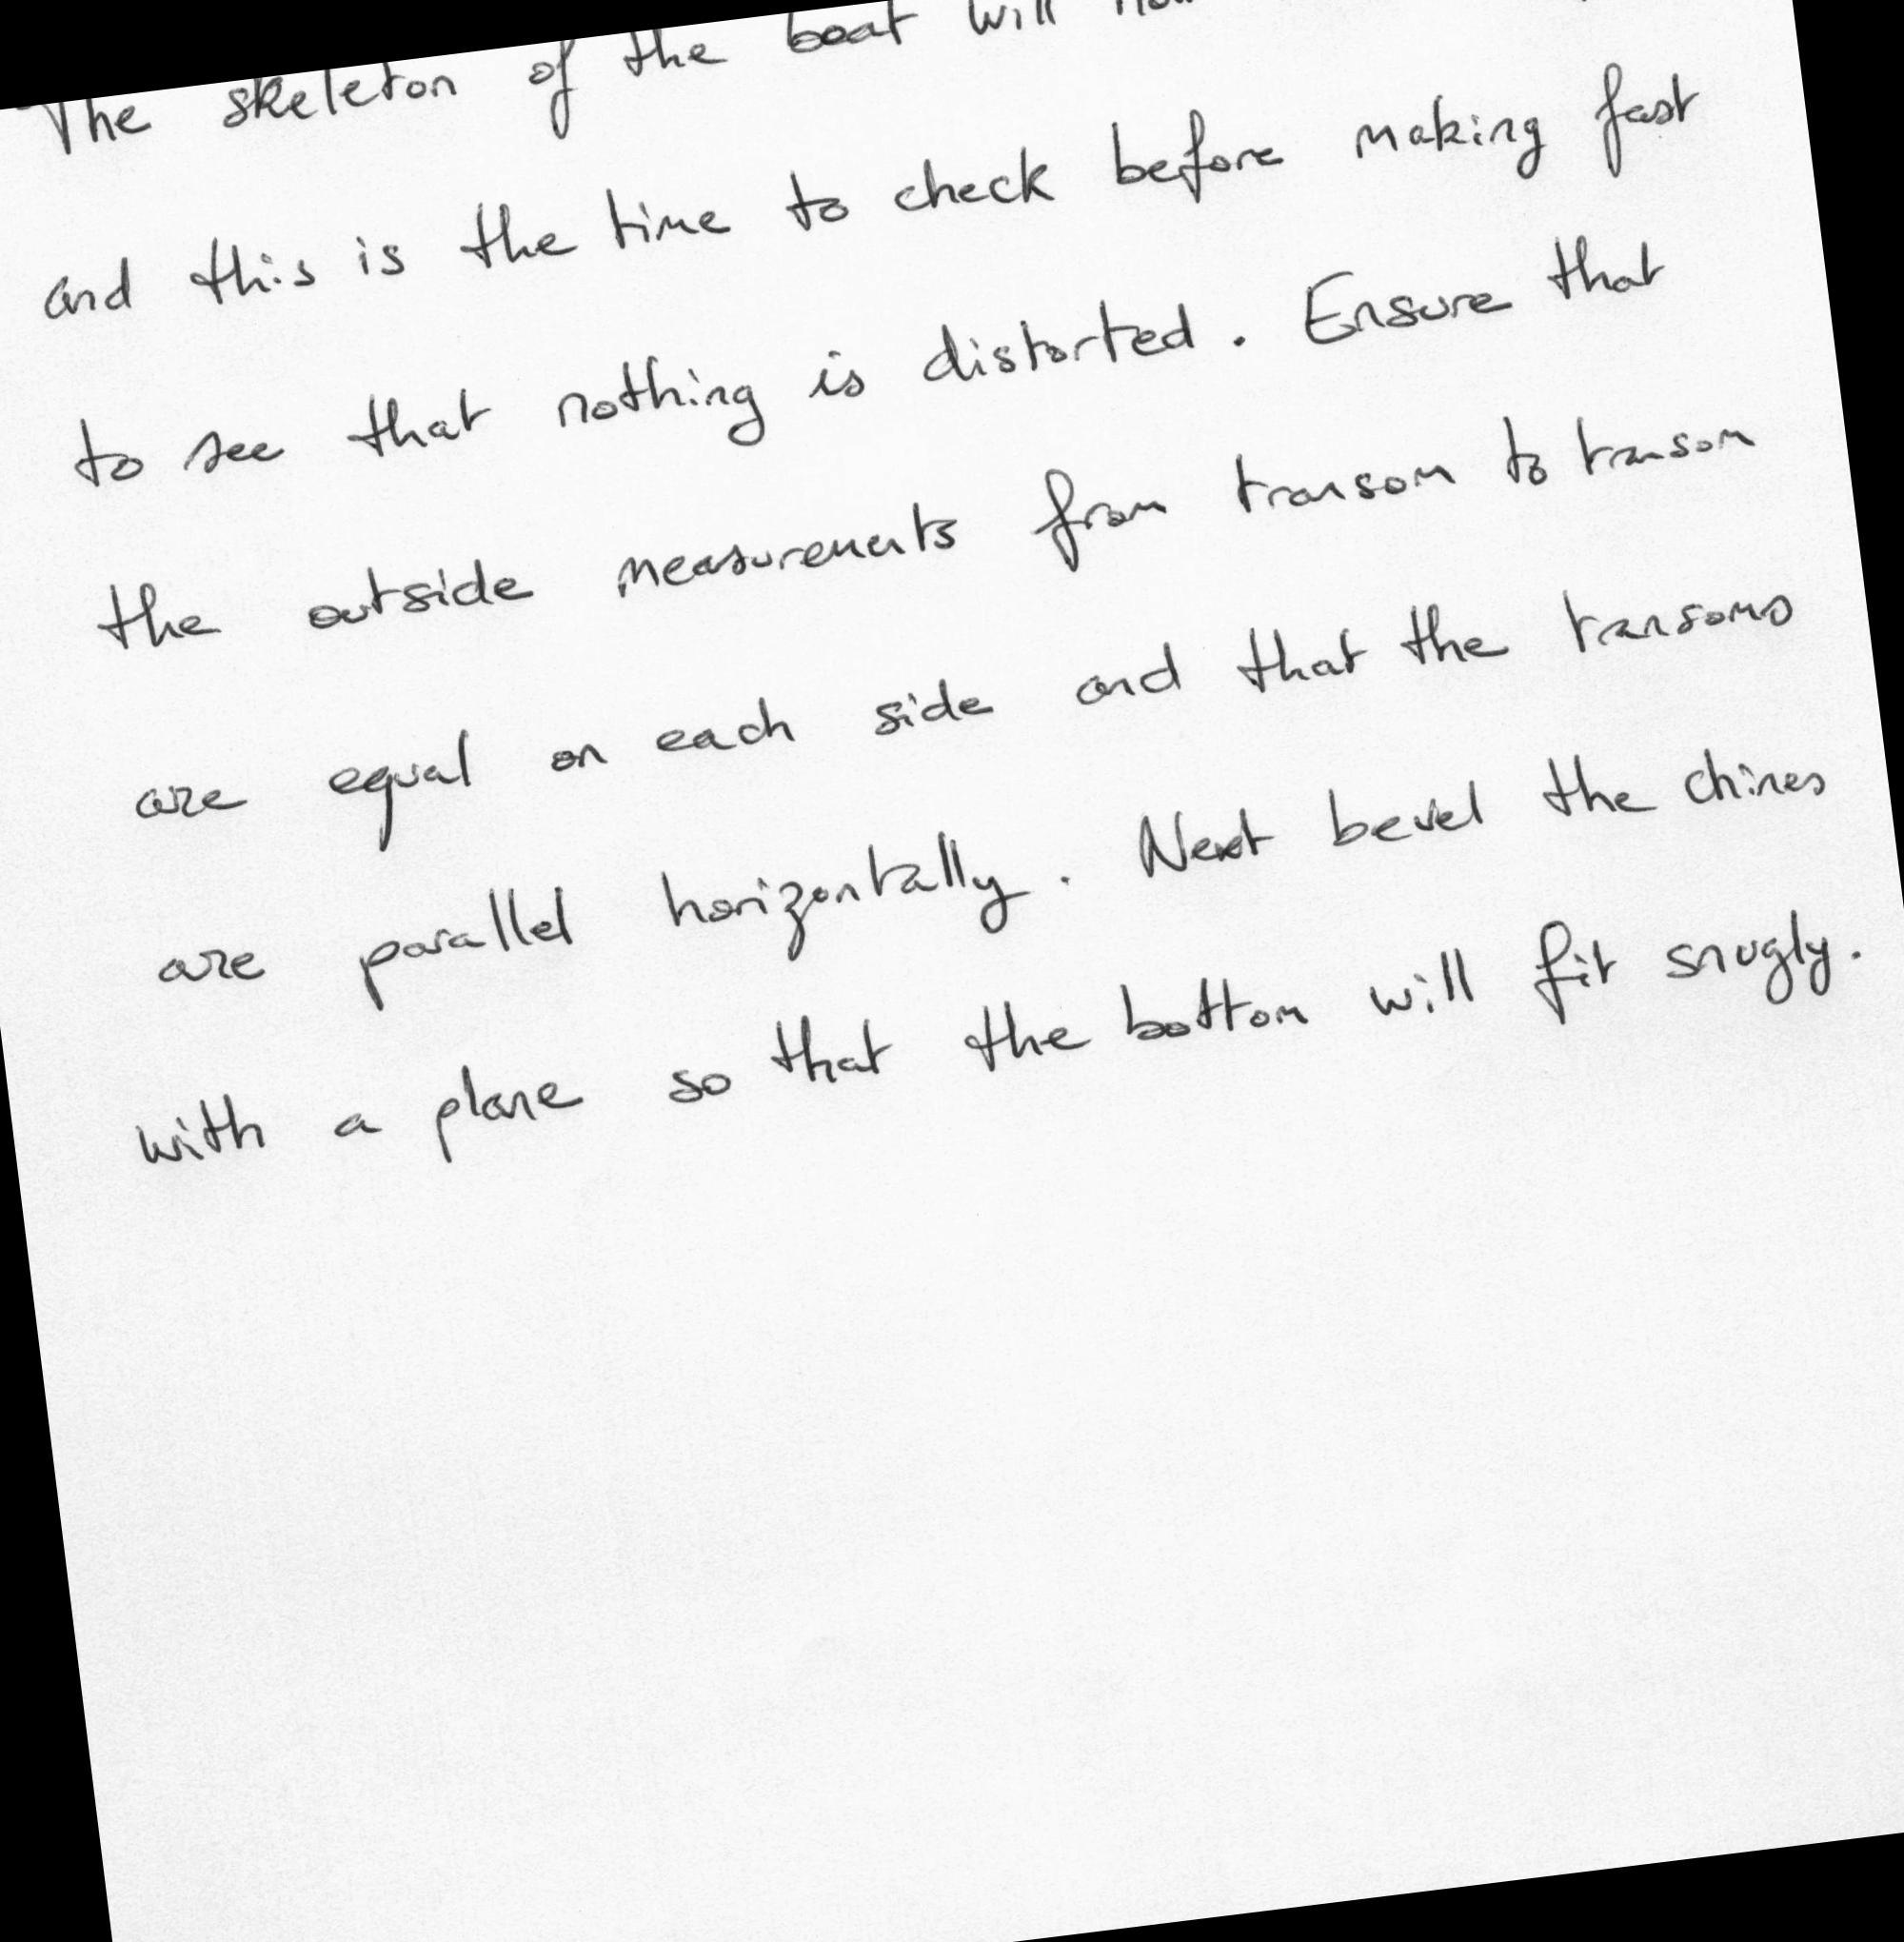 The skeleton of the boat will
and this is the time to check before making fast
to see that nothing is distorted. Ensure that
the outside measurements from transom to transom
are equal on each side and that the transoms
are parallel horizontally. Next bevel the chines
with a plane so that the bottom will fit snugly.